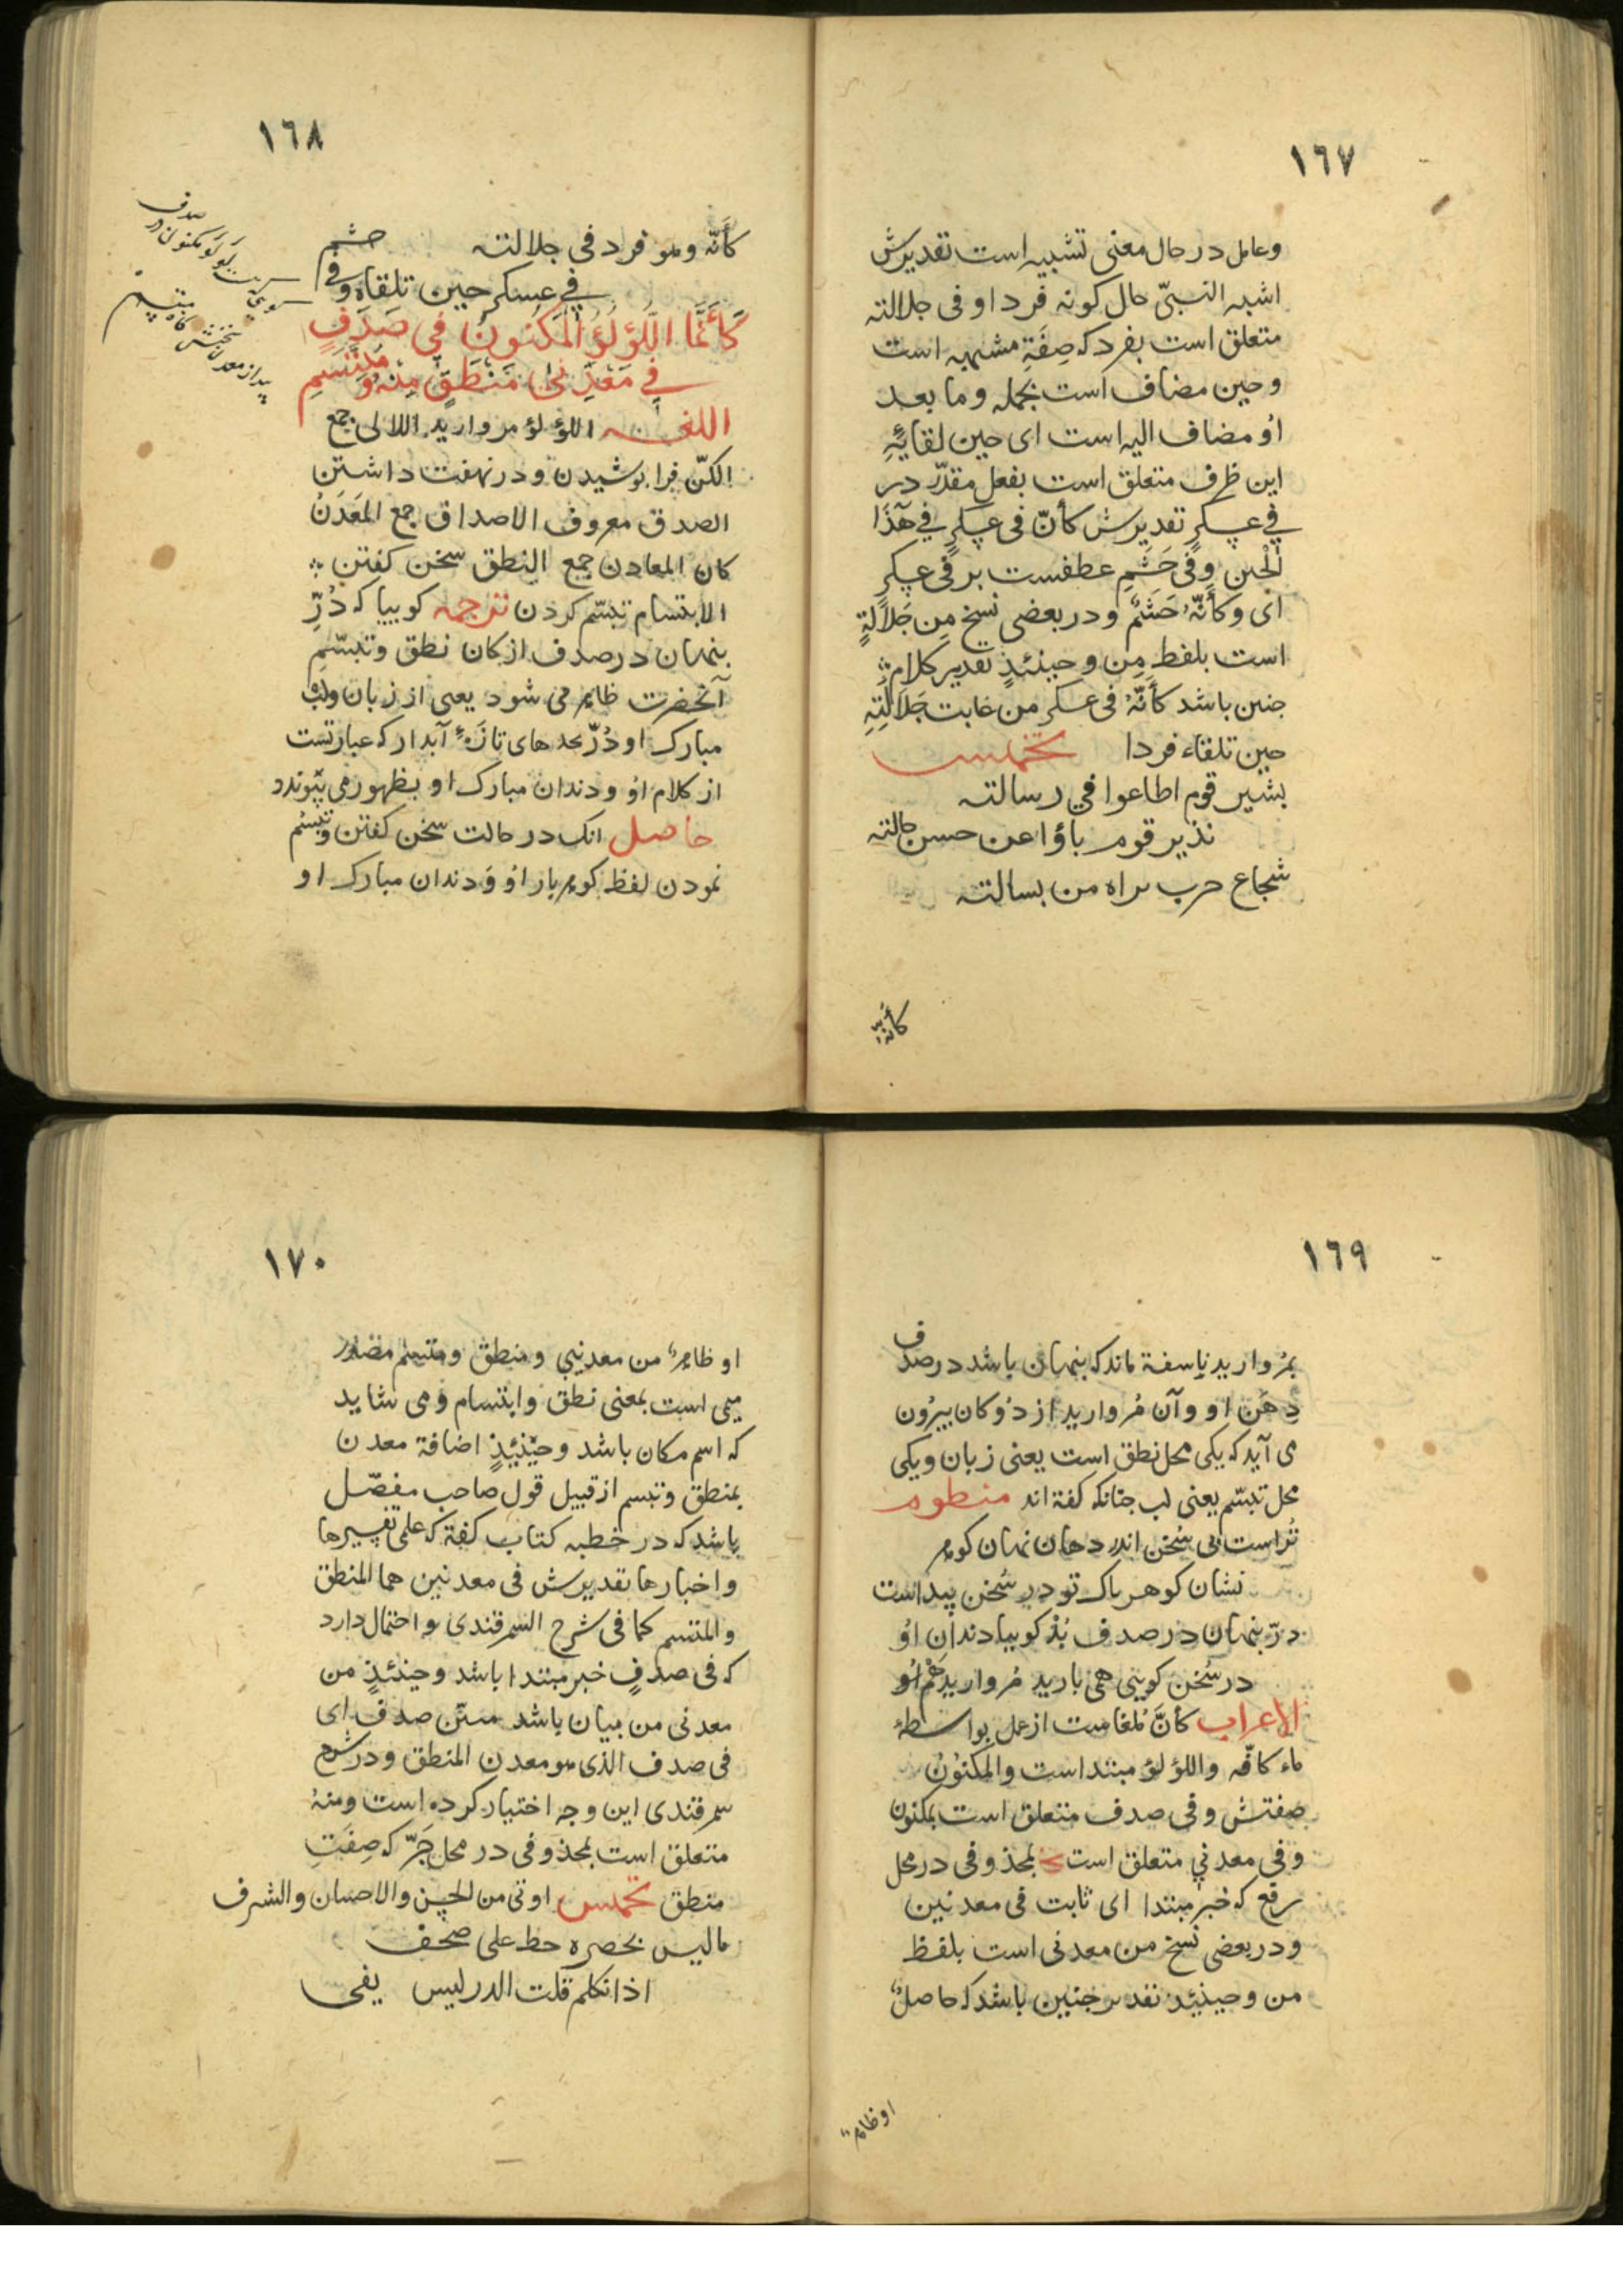 ١٦٧
وعامل در حال معنی تشبیه است تقدیرش
اشبه النبیّ حال کونه فردا و فی جلالته
متعلق است بفرد که صِفَةِ مشبهه است
وحین مضاف است بجمله وما بعد
اوُ مضاف الیه است ای حین لقائِهِ
این ظرف متعلق است بفعل مقدّر در
في عسکرٍ تقدیرش کأنّ فی عسکرٍ في هٓذَا
الْحین وفی حَشَمٍ عطفست بر فی عسکرٍ
ای وکأنّهُ حَشَمٌ ودر بعضی نسخ مِن جَلاَلةٍ
است بلفظ مِن وحینئذٍ تقدیر کلام
جنین باشد کأنّهُ فی عسکر من غایت جَلَالَتِهِ
حین تلقاء فردا تخمیس
بشیر قوم اطاعوا في رسالته
نذیر قوم باؤا عن حسن حالته
شجاع حرب براه من بسالته
كأنه
١٦٨
كأنّه وهو فرد في جلالته
في عسكر حين تلقاه وفي حشم
كَأَنَّمَا اللُّؤْلُؤُ الْمَكْنُونُ فِي صَدَفٍ
فِي مَعْدِنَيْ مَنْطَقٍ مِنْهُ وَ مُبْتَسَمِ
اللغه اللؤلؤ مروارید اللالی جمع
الکنّ فرا پوشیدن ودر نهفت داشتن
الصدف معروف الاصداف جمع المَعْدَنُ
کان المعادن جمع النطق سخن کفتن
الابتسام تبسّم کردن ترجمه کوییا که دُرِّ
پنهان در صدف از کان نطق وتبسّمِ
آنحضرت ظاهر می شود یعنی از زبان ولب
مبارک او دُرّ سخنهای تازۀ آبدار که عبارتست
از کلام او و دندان مبارک او بظهور می پیوندد
حاصل انک در حالت سخن کفتن وتبسّم
نمودن لفظ کوهر بار او وَ دندان مبارک او
کویی لؤلؤ مکنون در صدف
پیدا از معدن
١٦٩
بمُروارید ناسفة ماند که پنهان باشد در صدف
دِهَن او وآن مُروارید از دُو کان بیرُون
می آید که یکی محل نطق است یعنی زبان ویکی
محل تبسّم یعنی لب جنانکه کفة اند منظوم
تُراست بی سُخن اندر دهان نهان کوهر
نشان کوهر پاک تو در سُخن پیداست
درّ پنهان در صدف بُد کوییا دندان اوُ
در سُخن کویی همی بارید مُروارید هم اوُ
الاعراب کأنَّ مُلغاست از عمل بواسطۀ
ماء کافّه واللؤلؤ مبتداست والمکنُونُ
صفتش وفی صدف متعلق است بمکنون
وفی معدنی متعلق است بمحذوفی در محل
رفع که خبر مبتدا ای ثابت فی معدنین
ودر بعضی نسخ من معدنی است بلفظ
من وحینئذ تقدیر جنین باشد که حاصلٌ
او ظاهر
١٧٠
او ظاهرٌ من معدنی ومنطق ومتبسم مصدر
میمی است بمعنی نطق وابتسام ومی شاید
که اسم مکان باشد وحینئذٍ اضافة معدن
بمنطق وتبسم از قبیل قول صاحب مفصّل
باشد که در خطبه کتاب کفة که علمی تفسیرها
واخبارها تقدیرش فی معدنین هما المنطق
والمبتسم کما فی شرح السمرقندی واحتمال دارد
که فی صدفٍ خبر مبتدا باشد وحینئذٍ من
معدنی من بیان باشد مبیّن صدف ای
فی صدف الذی هو معدن المنطق ودر شرح
سمرقندی این وجه اختیار کرده است ومنهُ
متعلق است بمحذوفی در محل جَرّ که صِفَتِ
منطق تخمیس اوتی من الحسن والاحسان والشرف
مالیس بحصره خط علی صحف
اذا تکلم قلت الدر لیس یفی